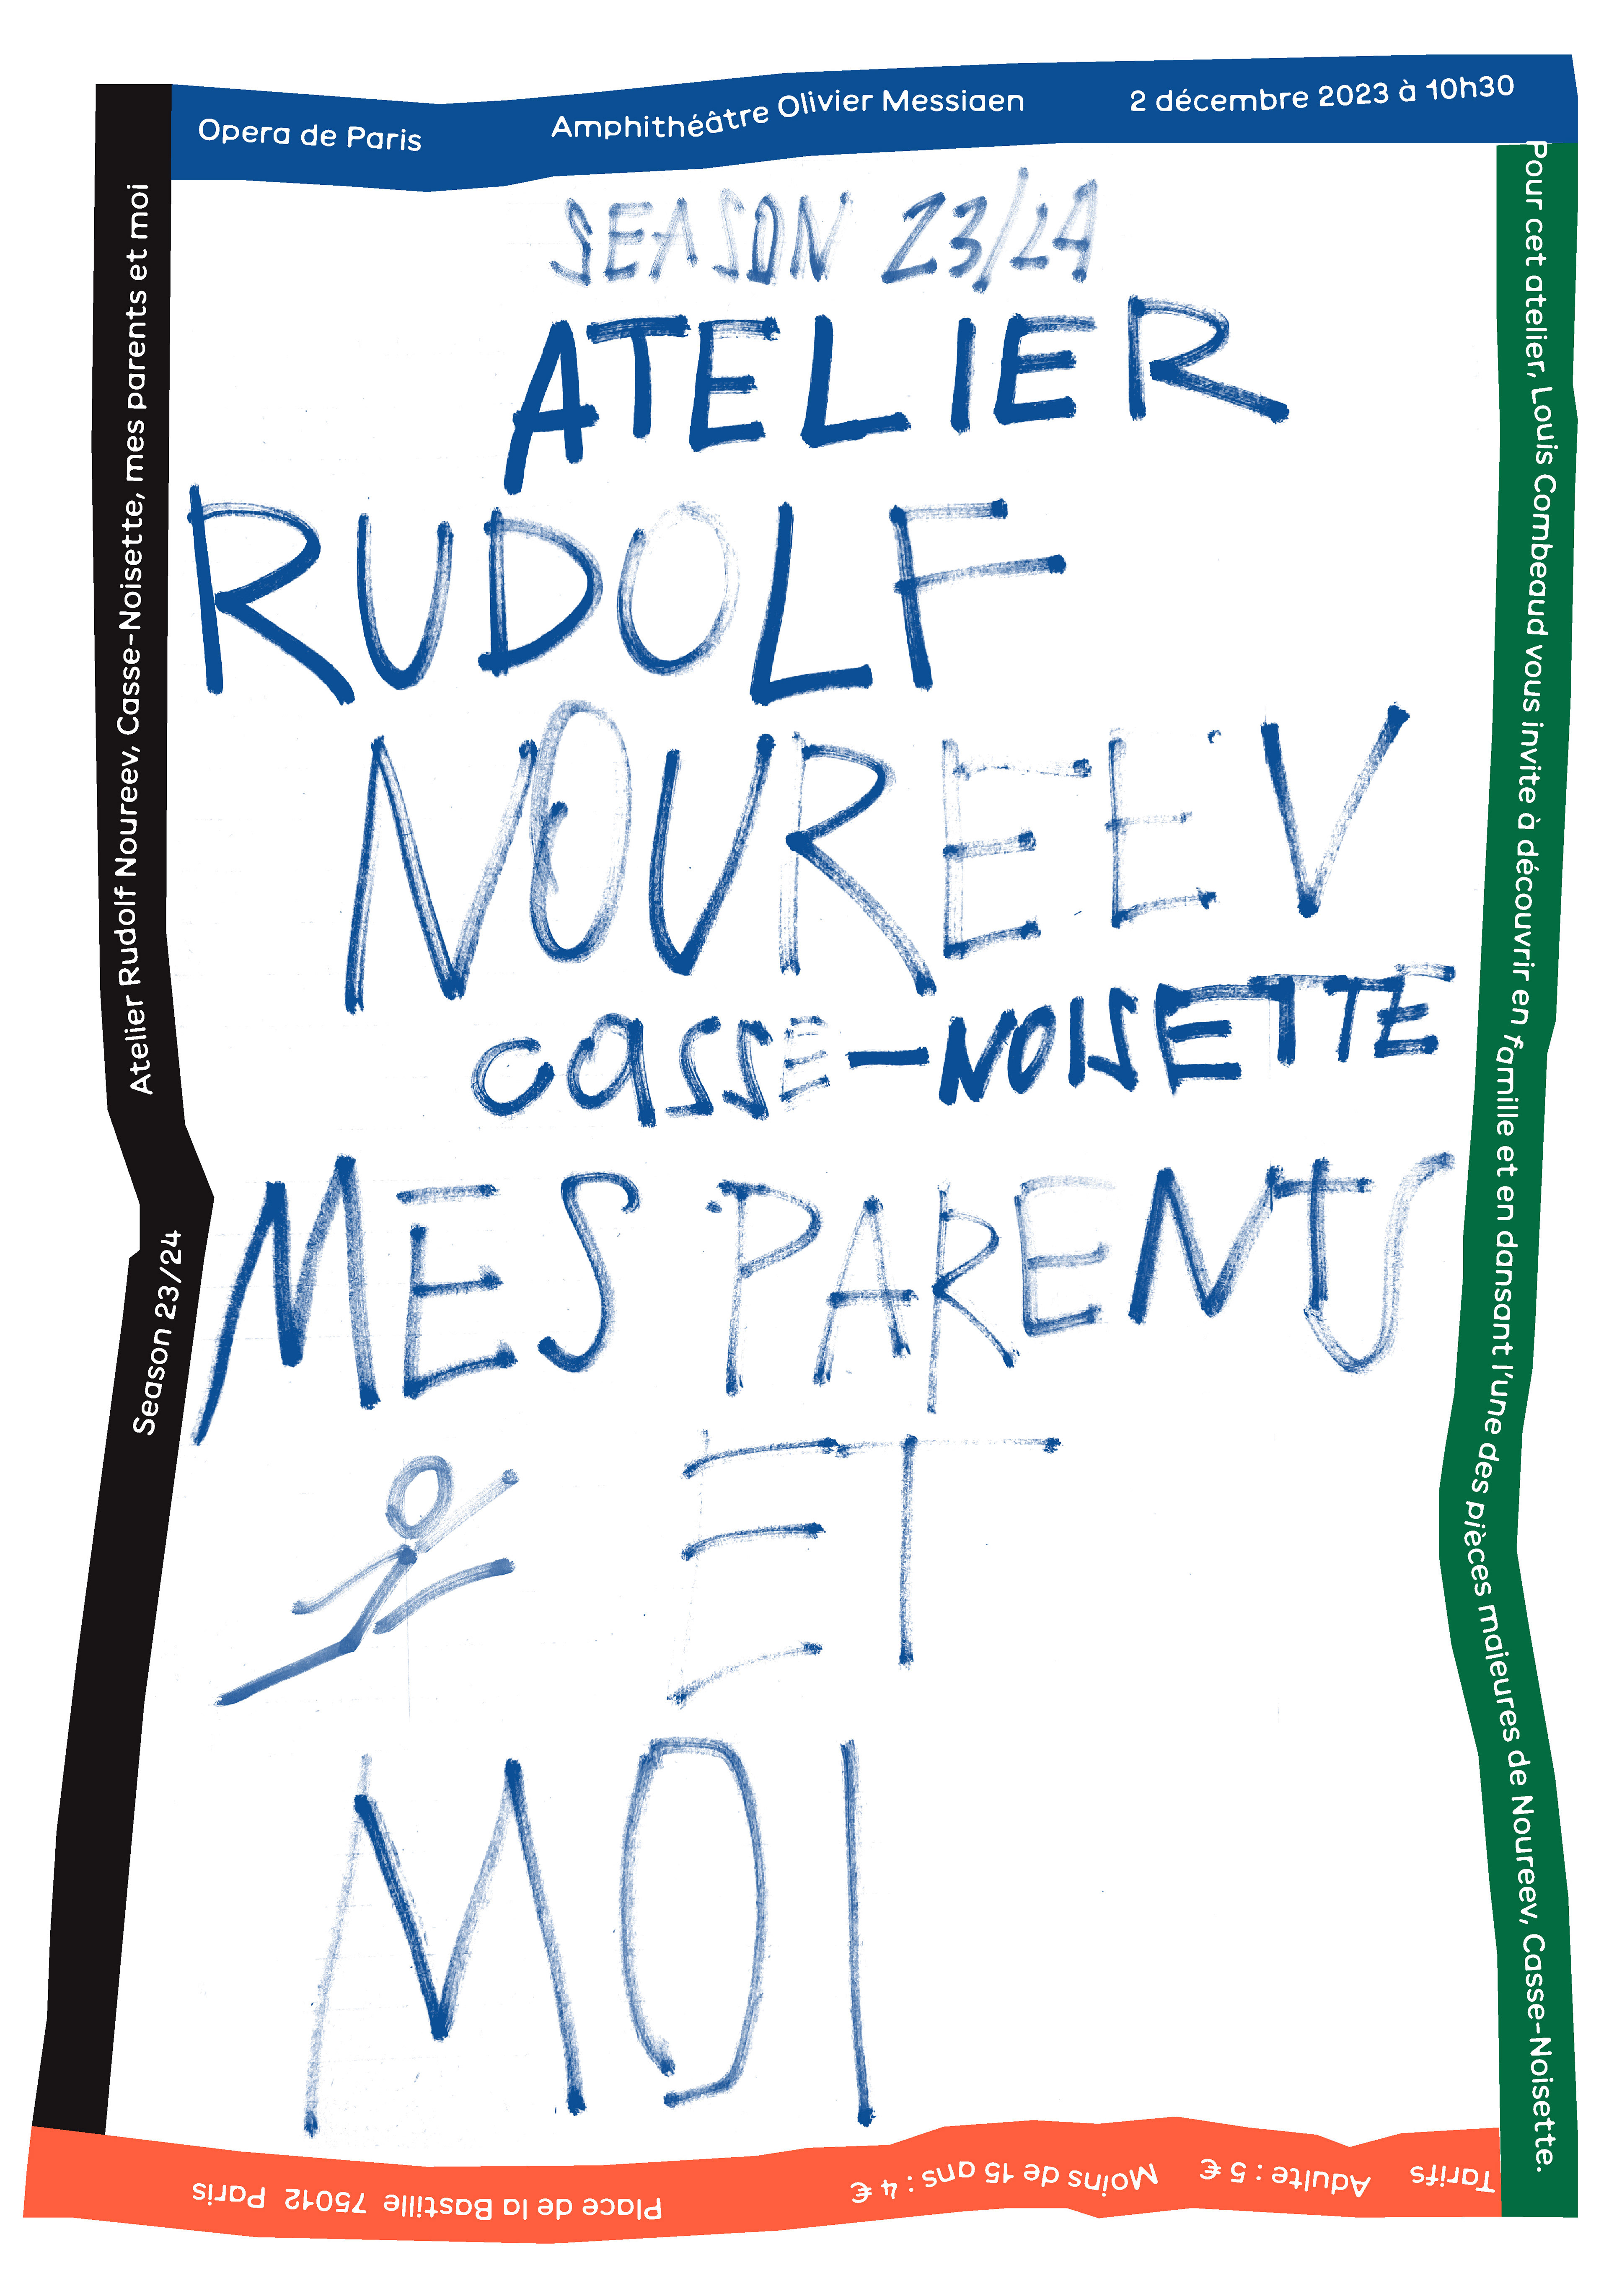 Opera de Paris
Amphithéâtre Olivier Messiaen
2 décembre 2023 à 10h30
SEASON 23/24
ATELIER
RUDOLF
NOUREEV
CASSE-NOISETTE
MES PARENTS
ET
MOI
Pour cet atelier, Louis Combeaud vous invite à découvrir en famille et en dansant l'une des pièces majeures de Noureev, Casse-Noisette.
Tarifs
Adulte : 5 €
Moins de 15 ans : 4 €
Place de la Bastille 75012 Paris
Season 23/24
Atelier Rudolf Noureev, Casse-Noisette, mes parents et moi